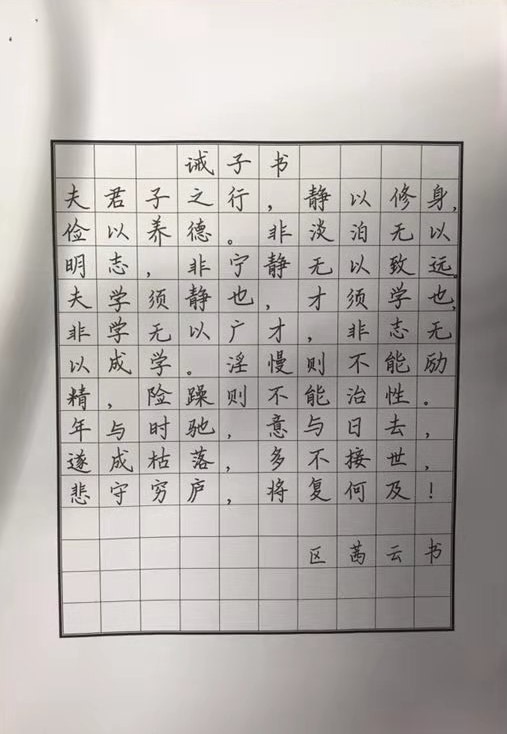 诫子书
夫君子之行，静以修身，
俭以养德。非淡泊无以
明志，非宁静无以致远。
夫学须静也，才须学也，
非学无以广才，非志无
以成学。淫慢则不能励
精，险躁则不能治性。
年与时驰，意与日去，
遂成枯落，多不接世，
悲守穷庐，将复何及！
区茜云书